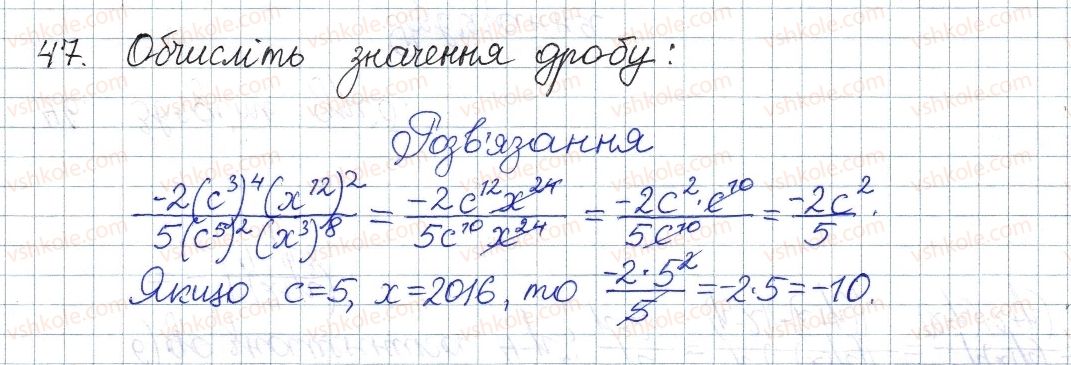 47. Обчисліть значення дробу:
Розв'язання
-2(c³)⁴(x¹²)² / 5(c⁵)²(x³)⁸ = -2c¹²x²⁴ / 5c¹⁰x²⁴ = -2c²·c¹⁰ / 5c¹⁰ = -2c² / 5.
Якщо c=5, x=2016, то -2·5² / 5 = -2·5 = -10.